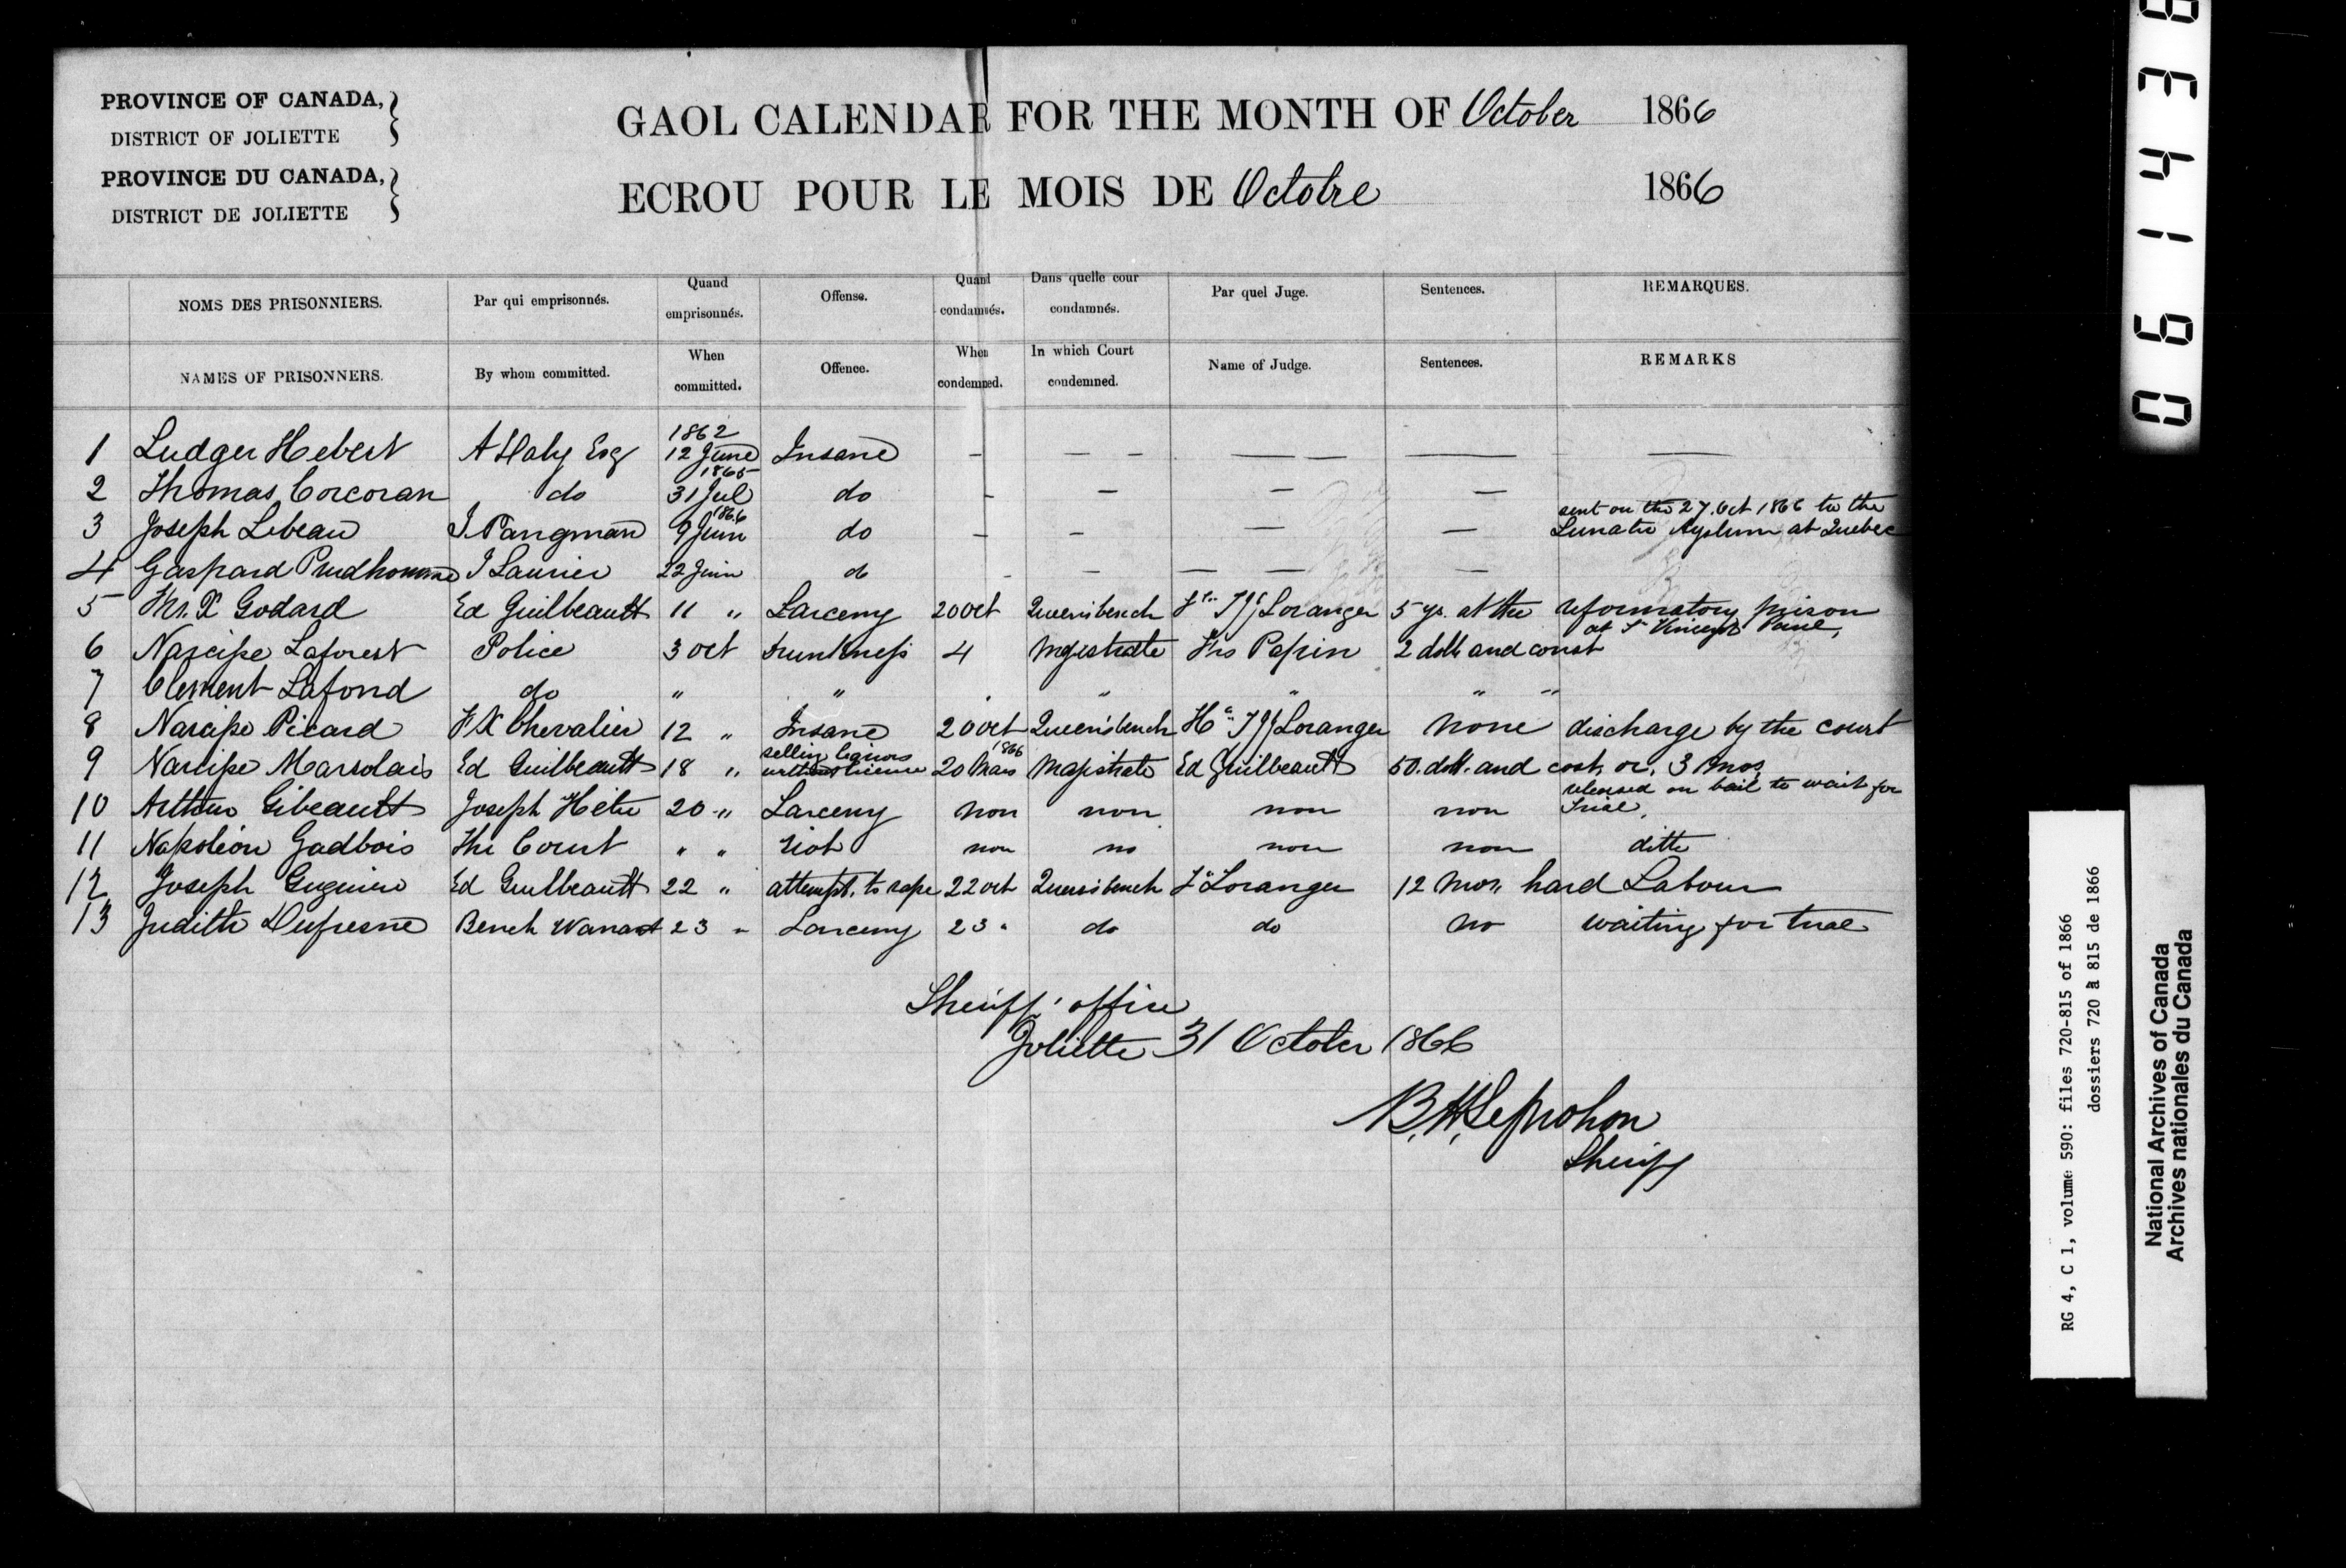 PROVINCE OF CANADA,
DISTRICT OF JOLIETTE
PROVINCE DU CANADA,
DISTRICT DE JOLIETTE
GAOL CALENDAR FOR THE MONTH OF October 1866
ECROU POUR LE MOIS DE Octobre 1866
NOMS DES PRISONNIERS. Par qui emprisonnés. Quand emprisonnés. Offense. Quand condamnés. Dans quelle cour condamnés. Par quel Juge. Sentences. REMARQUES.
NAMES OF PRISONNERS. By whom committed. When committed. Offence. When condemned. In which Court condemned. Name of Judge. Sentences. REMARKS
1 Ludger Hebert A Daly Esq 1862 12 June Insane — — — — — — —
2 Thomas Corcoran do 1865 31 Jul do - — — —
3 Joseph Lebeau J. Pangman 1866 9 Juin do — — — — sent on the 27. Oct 1866 to the Lunatic Ayslum at Quebec
4 Gaspard Prudhomme J Laurier 22 Juin do - — — — —
5 Frs. X Godard Ed Guilbeault 11 " Larceny 20 Oct Queens bench Loranger 5 ys. at the reformatory prison at St Vincent Paul,
6 Narcisse Laforest Police 3 Oct 4 Magistrate Frs Papin 2 dolls and const
7 Clement Lafond do " " . " " " "
8 Narcisse Picard F X Chevalier 12 " Insane 20 oct Queen's bench Loranger none discharge by the court
9 Narcisse Marsolais Ed Guilbeault 18 " selling liquors without license 20 Mars 1866 Magistrate Ed Guilbeault 50. doll. and cost, or, 3 mos,
10 Arthur Gibeault Joseph Hétu 20 " Larceny non non non non released on bail to wait for Trial.
11 Napoléon Gadbois The Court " " riot non no non non ditto
12 Joseph Ed Guilbeault 22 " attempt. to rape 22 oct Queens bench Loranger 12 mos, hard Labour
13 Judith Dufresne Bench Warrant 23 " Larceny 23 " do do no waiting for trial
Sheriff' office
Joliette 31 October 1866
B. H. Leprohon
Sheriff
RG 4, C 1, volume 590: files 720-815 of 1866
dossiers 720 à 815 de 1866
National Archives of Canada
Archives nationales du Canada